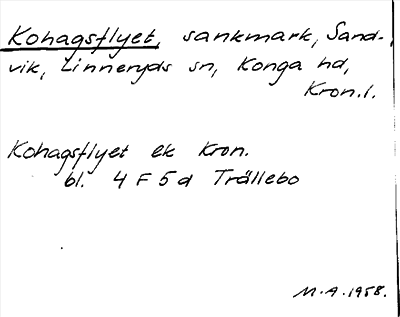 Kohagsflyet, sankmark, Sand-
vik, Linneryds sn, Konga hd,
Kron.l.
Kohagsflyet ek Kron.
bl. 4 F 5 d Trällebo
M.A. 1958.